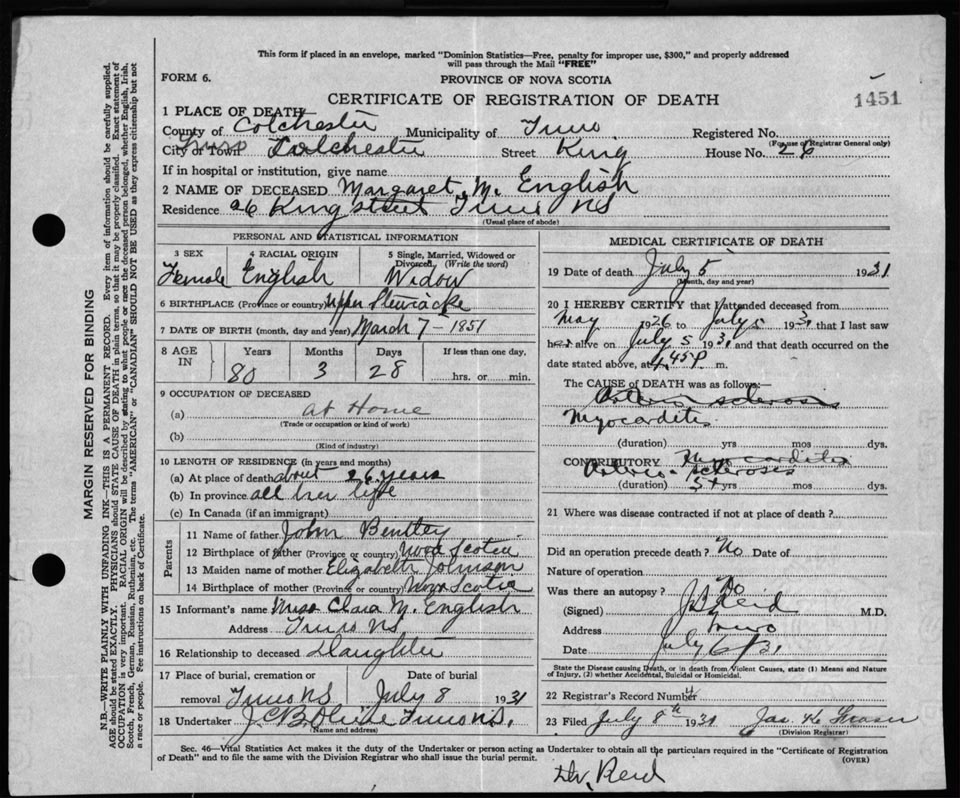 This form if placed in an envelope, marked "Dominion Statistics—Free, penalty for improper use, $300," and properly addressed
will pass through the Mail "FREE"
FORM 6.
PROVINCE OF NOVA SCOTIA
CERTIFICATE OF REGISTRATION OF DEATH
1451
1 PLACE OF DEATH
County of Colchester Municipality of Truro Registered No.
(For use of Registrar General only)
City or Town Truro Colchester Street King House No. 26
If in hospital or institution, give name
2 NAME OF DECEASED Margaret M. English
Residence 26 King Street Truro NS
(Usual place of abode)
PERSONAL AND STATISTICAL INFORMATION
3 SEX 4 RACIAL ORIGIN 5 Single, Married, Widowed or Divorced. (Write the word)
Female English Widow
6 BIRTHPLACE (Province or country) Upper Stewiacke
7 DATE OF BIRTH (month, day and year) March 7 - 1851
8 AGE IN Years Months Days If less than one day.
80 3 28 hrs. or min.
9 OCCUPATION OF DECEASED
(a) at Home
(Trade or occupation or kind of work)
(b)
(Kind of industry)
10 LENGTH OF RESIDENCE (in years and months)
(a) At place of death about 26 years
(b) In province all her life
(c) In Canada (if an immigrant)
Parents
11 Name of father John Bentley
12 Birthplace of father (Province or country) Nova Scotia
13 Maiden name of mother Elizabeth Johnson
14 Birthplace of mother (Province or country) Nova Scotia
15 Informant's name Miss Clara M. English
Address Truro NS
16 Relationship to deceased Daughter
17 Place of burial, cremation or Date of burial
removal Truro NS July 8 1931
18 Undertaker J.C.B. Truro NS.
(Name and address)
MEDICAL CERTIFICATE OF DEATH
19 Date of death July 5 1931
(Month, day and year)
20 I HEREBY CERTIFY that I attended deceased from
May 1926 to July 5 1931 that I last saw
her alive on July 5 1931 and that death occurred on the
date stated above, at 1.45 P. m.
The CAUSE OF DEATH was as follows:—
Arterio sclerosis
Myocarditis
(duration) yrs mos dys.
CONTRIBUTORY Myocarditis
Arterio sclerosis
(duration) 5+ yrs mos dys.
21 Where was disease contracted if not at place of death?
Did an operation precede death? No Date of
Nature of operation
Was there an autopsy? No
(Signed) Reid M.D.
Address Truro
Date July 6/31
State the Disease causing Death, or in death from Violent Causes, state (1) Means and Nature
of Injury, (2) whether Accidental, Suicidal or Homicidal.
22 Registrar's Record Number
23 Filed July 8th 1931 Jas. Fraser
(Division Registrar)
Sec. 46—Vital Statistics Act makes it the duty of the Undertaker or person acting as Undertaker to obtain all the particulars required in the "Certificate of Registration
of Death" and to file the same with the Division Registrar who shall issue the burial permit.
(OVER)
Dr. Reid
MARGIN RESERVED FOR BINDING
N.B.—WRITE PLAINLY WITH UNFADING INK—THIS IS A PERMANENT RECORD. Every item of information should be carefully supplied.
AGE should be stated EXACTLY. PHYSICIANS should STATE CAUSE OF DEATH in plain terms, so that it may be properly classified. Exact statement of
OCCUPATION is very important. RACIAL ORIGIN will be described by stating to what people or race the deceased person belonged, whether English, Irish,
Scotch, French, German, Russian, Ruthenian, etc. The terms "AMERICAN" or "CANADIAN" SHOULD NOT BE USED as they express citizenship but not
a race or people. See instructions on back of Certificate.